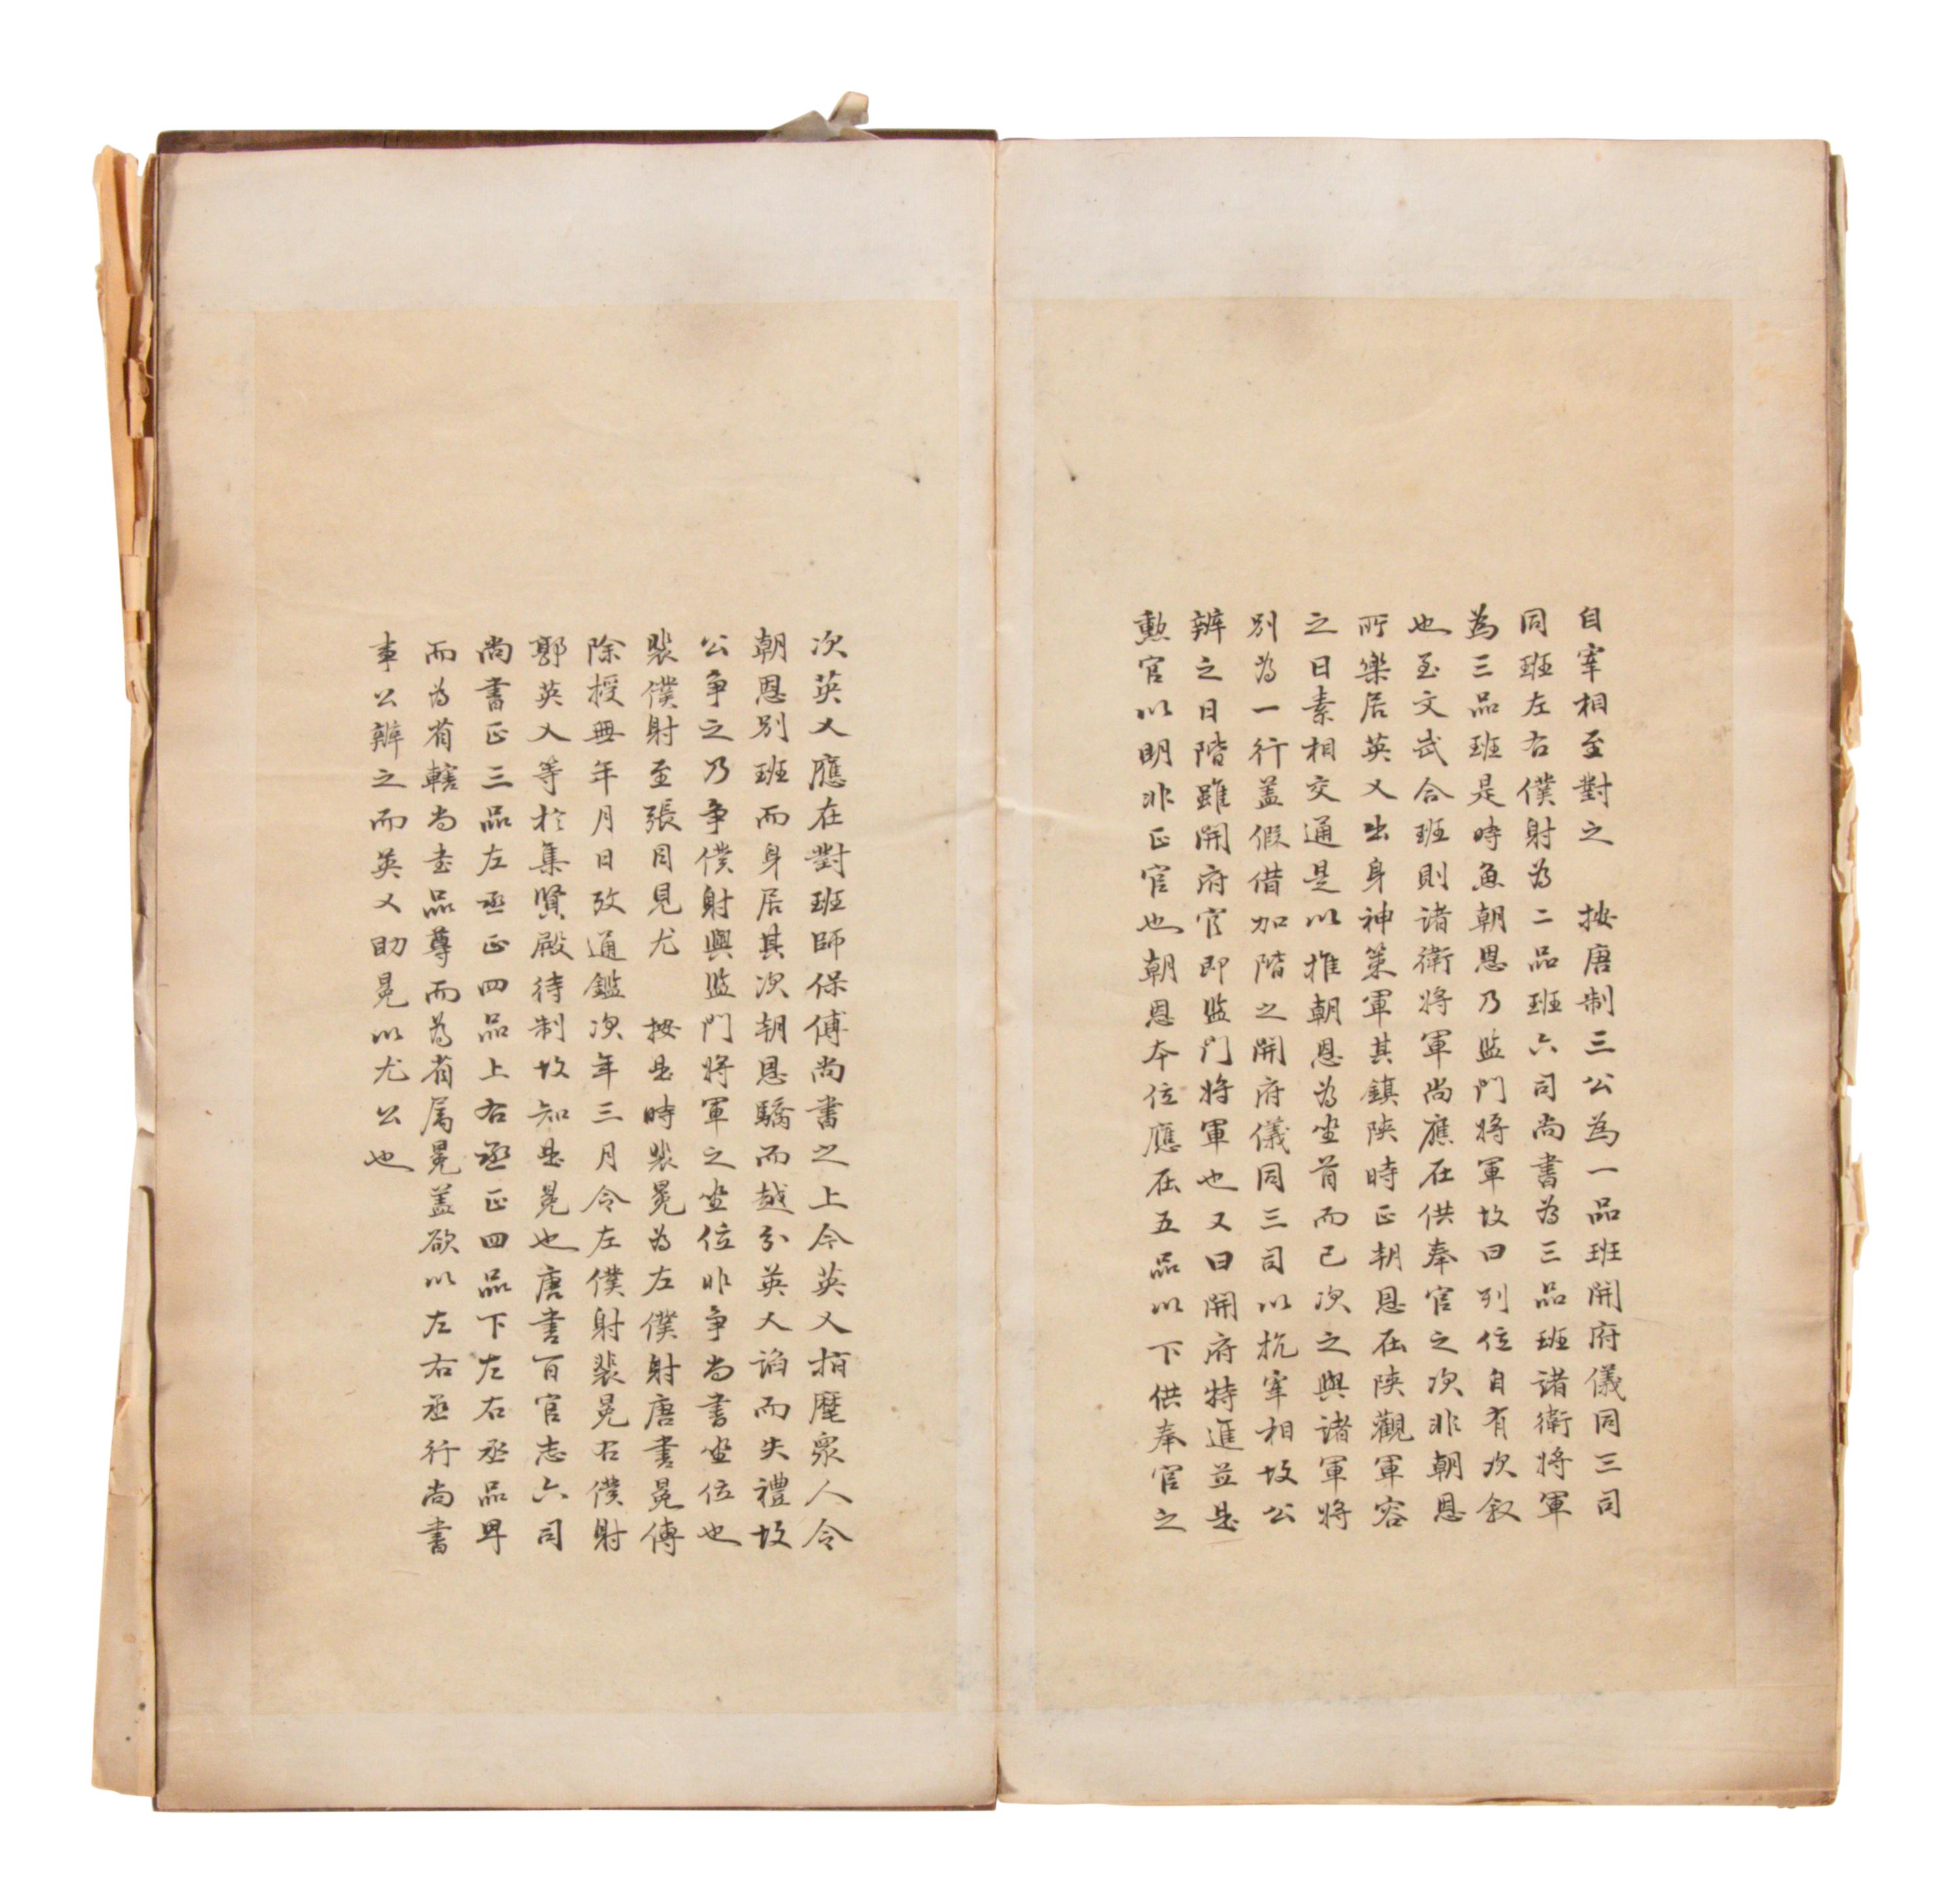 自宰相至對之　按唐制三公為一品班開府儀同三司
同班左右僕射為二品班六司尚書為三品班諸衛將軍
為三品班是時魚朝恩乃監門將軍故曰列位自有次叙
也至文武合班則諸衛將軍尚應在供奉官之次非朝恩
所樂居英乂出身神策軍其鎮陝時正朝恩在陝觀軍容
之日素相交通是以推朝恩為坐首而已次之與諸軍將
別為一行盖假借加階之開府儀同三司以抗宰相故公
辨之曰階雖開府官即監門將軍也又曰開府特進並是
勲官以明非正官也朝恩本位應在五品以下供奉官之
次英乂應在對班師保傅尚書之上今英乂指麾衆人令
朝恩別班而身居其次朝恩驕而越分英乂諂而失禮故
公争之乃争僕射與監門將軍之坐位非争尚書坐位也
裴僕射至張目見尤　按是時裴冕為左僕射唐書冕傳
除授無年月日攷通鑑次年三月令左僕射裴冕右僕射
郭英乂等於集賢殿待制故知是冕也唐書百官志六司
尚書正三品左丞正四品上右丞正四品下左右丞品卑
而為省轄尚書品尊而為省屬冕盖欲以左右丞行尚書
事公辨之而英乂助冕以尤公也